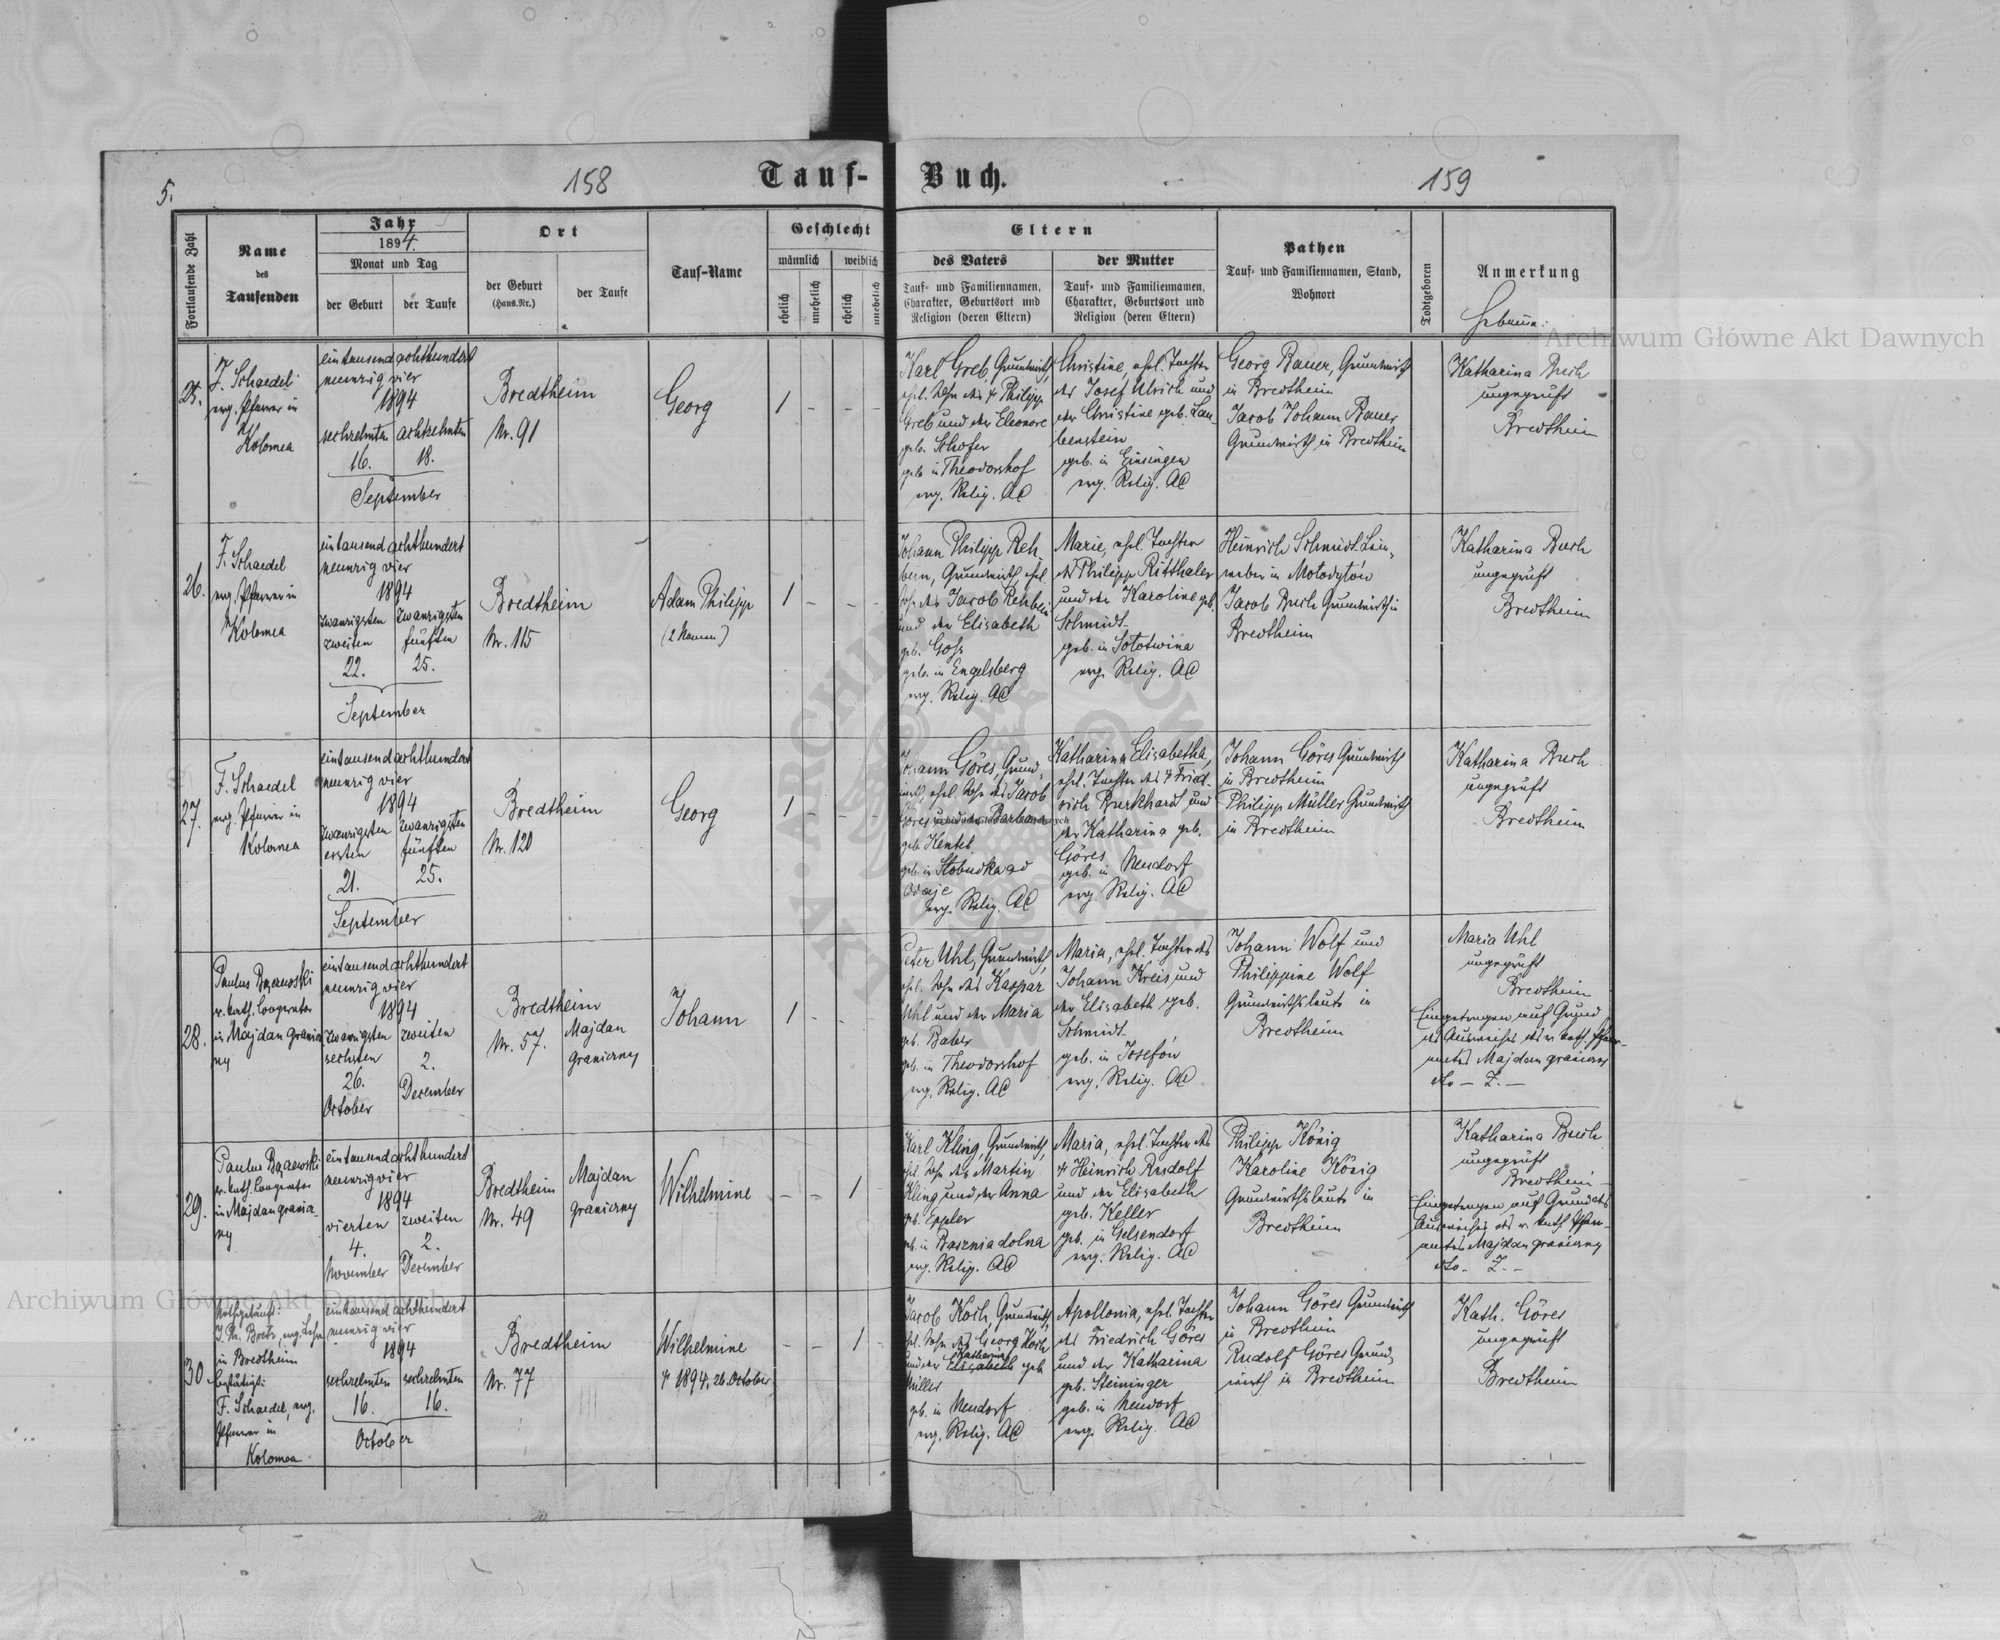 5.
158
Tauf-
Buch.
159
Fortlaufende Zahl
Name
des
Taufenden
Jahr
1894.
Monat und Tag
der Geburt
der Taufe
Ort
der Geburt
(Haus-Nr.)
der Taufe
Tauf-Name
Geschlecht
männlich
weiblich
ehelich
unehelich
ehelich
unehelich
Eltern
des Vaters
Tauf- und Familiennamen,
Charakter, Geburtsort und
Religion (deren Eltern)
der Mutter
Tauf- und Familiennamen,
Charakter, Geburtsort und
Religion (deren Eltern)
Pathen
Tauf- und Familiennamen, Stand,
Wohnort
Todtgeboren
Anmerkung
Archiwum Główne Akt Dawnych
25.
F. Schaedel
evg. Pfarrer in
Kolomea
eintausendachthundert
neunzig vier
1894
sechzehnten
16.
achtzehnten
18.
September
Bredtheim
Nr. 91
Georg
1 - - -
Karl Greb, Grundwirth,
ehel. Sohn des † Philipp
Greb und der Eleonore
geb. Schofer
geb. in Theodorshof
evg. Relig. AC
Christine, ehel. Tochter
des Josef Ulrich und
der Christine geb. Lau-
benstein
geb. in Einsingen
evg. Relig. AC
Georg Bauer, Grundwirth
in Bredtheim
Jacob Johann Bauer
Grundwirth in Bredtheim
Katharina Busch
ungeprüft
Bredtheim
26.
F. Schaedel
evg. Pfarrer in
Kolomea
eintausendachthundert
neunzig vier
1894
zwanzigsten
zweiten
22.
zwanzigsten
fünften
25.
September
Bredtheim
Nr. 115
Adam Philipp
(2 Namen)
1 - - -
Johann Philipp Reh-
bein, Grundwirth, ehel.
Sohn des Jacob Rehbein
und der Elisabeth
geb. in Engelsberg
evg. Relig. AC
Marie, ehel. Tochter
des Philipp Ritthaler
und der Karoline geb.
Schmidt
geb. in Sołotwina
evg. Relig. AC
Heinrich Schmidt Lein-
weber in Mołodytów
Jacob Busch Grundwirth in
Bredtheim
Katharina Busch
ungeprüft
Bredtheim
27.
F. Schaedel
evg. Pfarrer in
Kolomea
eintausendachthundert
neunzig vier
1894
zwanzigsten
ersten
21.
zwanzigsten
fünften
25.
September
Bredtheim
Nr. 120
Georg
1 - - -
Johann Göres, Grund-
wirth, ehel. Sohn des Jacob
Göres und der Barbara
geb. Hentel
geb. in Slobudka ad
Odaje
evg. Relig. AC
Katharina Elisabetha,
ehel. Tochter des † Fried-
rich Burkhard und
der Katharina geb.
Göres
geb. in Neudorf
evg. Relig. AC
Johann Göres Grundwirth
in Bredtheim
Philipp Müller Grundwirth
in Bredtheim
Katharina Busch
ungeprüft
Bredtheim
28.
Paulus
r. kath. Cooperator
in Majdan Granicz-
ny
eintausendachthundert
neunzig vier
1894
zwanzigsten
sechsten
26.
October
zweiten
2.
December
Bredtheim
Nr. 57.
Majdan
graniczny
Johann
1 - - -
Peter Uhl, Grundwirth,
ehel. Sohn des Kaspar
Uhl und der Maria
geb. Baber
geb. in Theodorshof
evg. Relig. AC
Maria, ehel. Tochter des
Johann Kreis und
der Elisabeth geb.
Schmidt
geb. in Josefów
evg. Relig. AC
Johann Wolf und
Philippine Wolf
Grundwirthsleute in
Bredtheim
Maria Uhl
ungeprüft
Bredtheim
Eingetragen auf Grund
des Ausweises des r. kath. Pfarr-
amtes Majdan graniczny
dto - Z. -
29.
Paulus
r. kath. Cooperator
in Majdan granicz-
ny
eintausendachthundert
neunzig vier
1894
vierten
4.
November
zweiten
2.
December
Bredtheim
Nr. 49
Majdan
graniczny
Wilhelmine
- - 1
Karl Kling, Grundwirth,
ehel. Sohn des Martin
Kling und der Anna
geb. Eppler
geb. in Basznia dolna
evg. Relig. AC
Maria, ehel. Tochter des
† Heinrich Rudolf
und der Elisabeth
geb. Keller
geb. in Gelsendorf
evg. Relig. AC
Philipp König
Karoline König
Grundwirthsleute in
Bredtheim
Katharina Busch
ungeprüft
Bredtheim
Eingetragen auf Grund des
Ausweises des r. kath. Pfarr-
amtes Majdan graniczny
dto - Z. -
Archiwum Główne Akt Dawnych
30.
Nothgetauft:
evg. Lehrer
in Bredtheim
bestätigt:
F. Schaedel, evg.
Pfarrer in
Kolomea
eintausendachthundert
neunzig vier
1894
sechzehnten
16.
sechzehnten
16.
October
Bredtheim
Nr. 77
Wilhelmine
† 1894, 26. October
- - 1 -
Jacob Koch, Grundwirth,
ehel. Sohn des Georg Koch
Katharina
und der Elisabeth geb.
Müller
geb. in Neudorf
evg. Relig. AC
Apollonia, ehel. Tochter
des Friedrich Göres
und der Katharina
geb. Steininger
geb. in Neudorf
evg. Relig. AC
Johann Göres Grundwirth
in Bredtheim
Rudolf Göres Grund-
wirth in Bredtheim
Kath. Göres
ungeprüft
Bredtheim